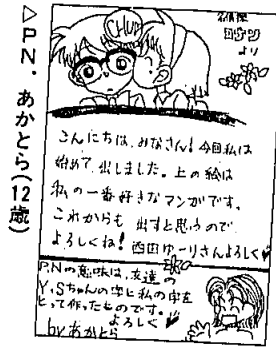 ▷PN.あかとら(12歳)
CHU
名探偵
コナン
より
こんにちは、みなさん!今回私は
始めて、出しました。上の絵は
私の一番好きなマンガです。
これからも 出すと思うので、
よろしくね! 西田ゆーりさんよろしく
P.Nの意味は、友達の
Y.Sちゃんの字と私の字を
とって作ったものです。
よろしく
by あかとら